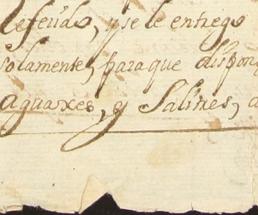 defeudo, y se le entrego
solamente, para que dispon
aguarxes, y Salines, a